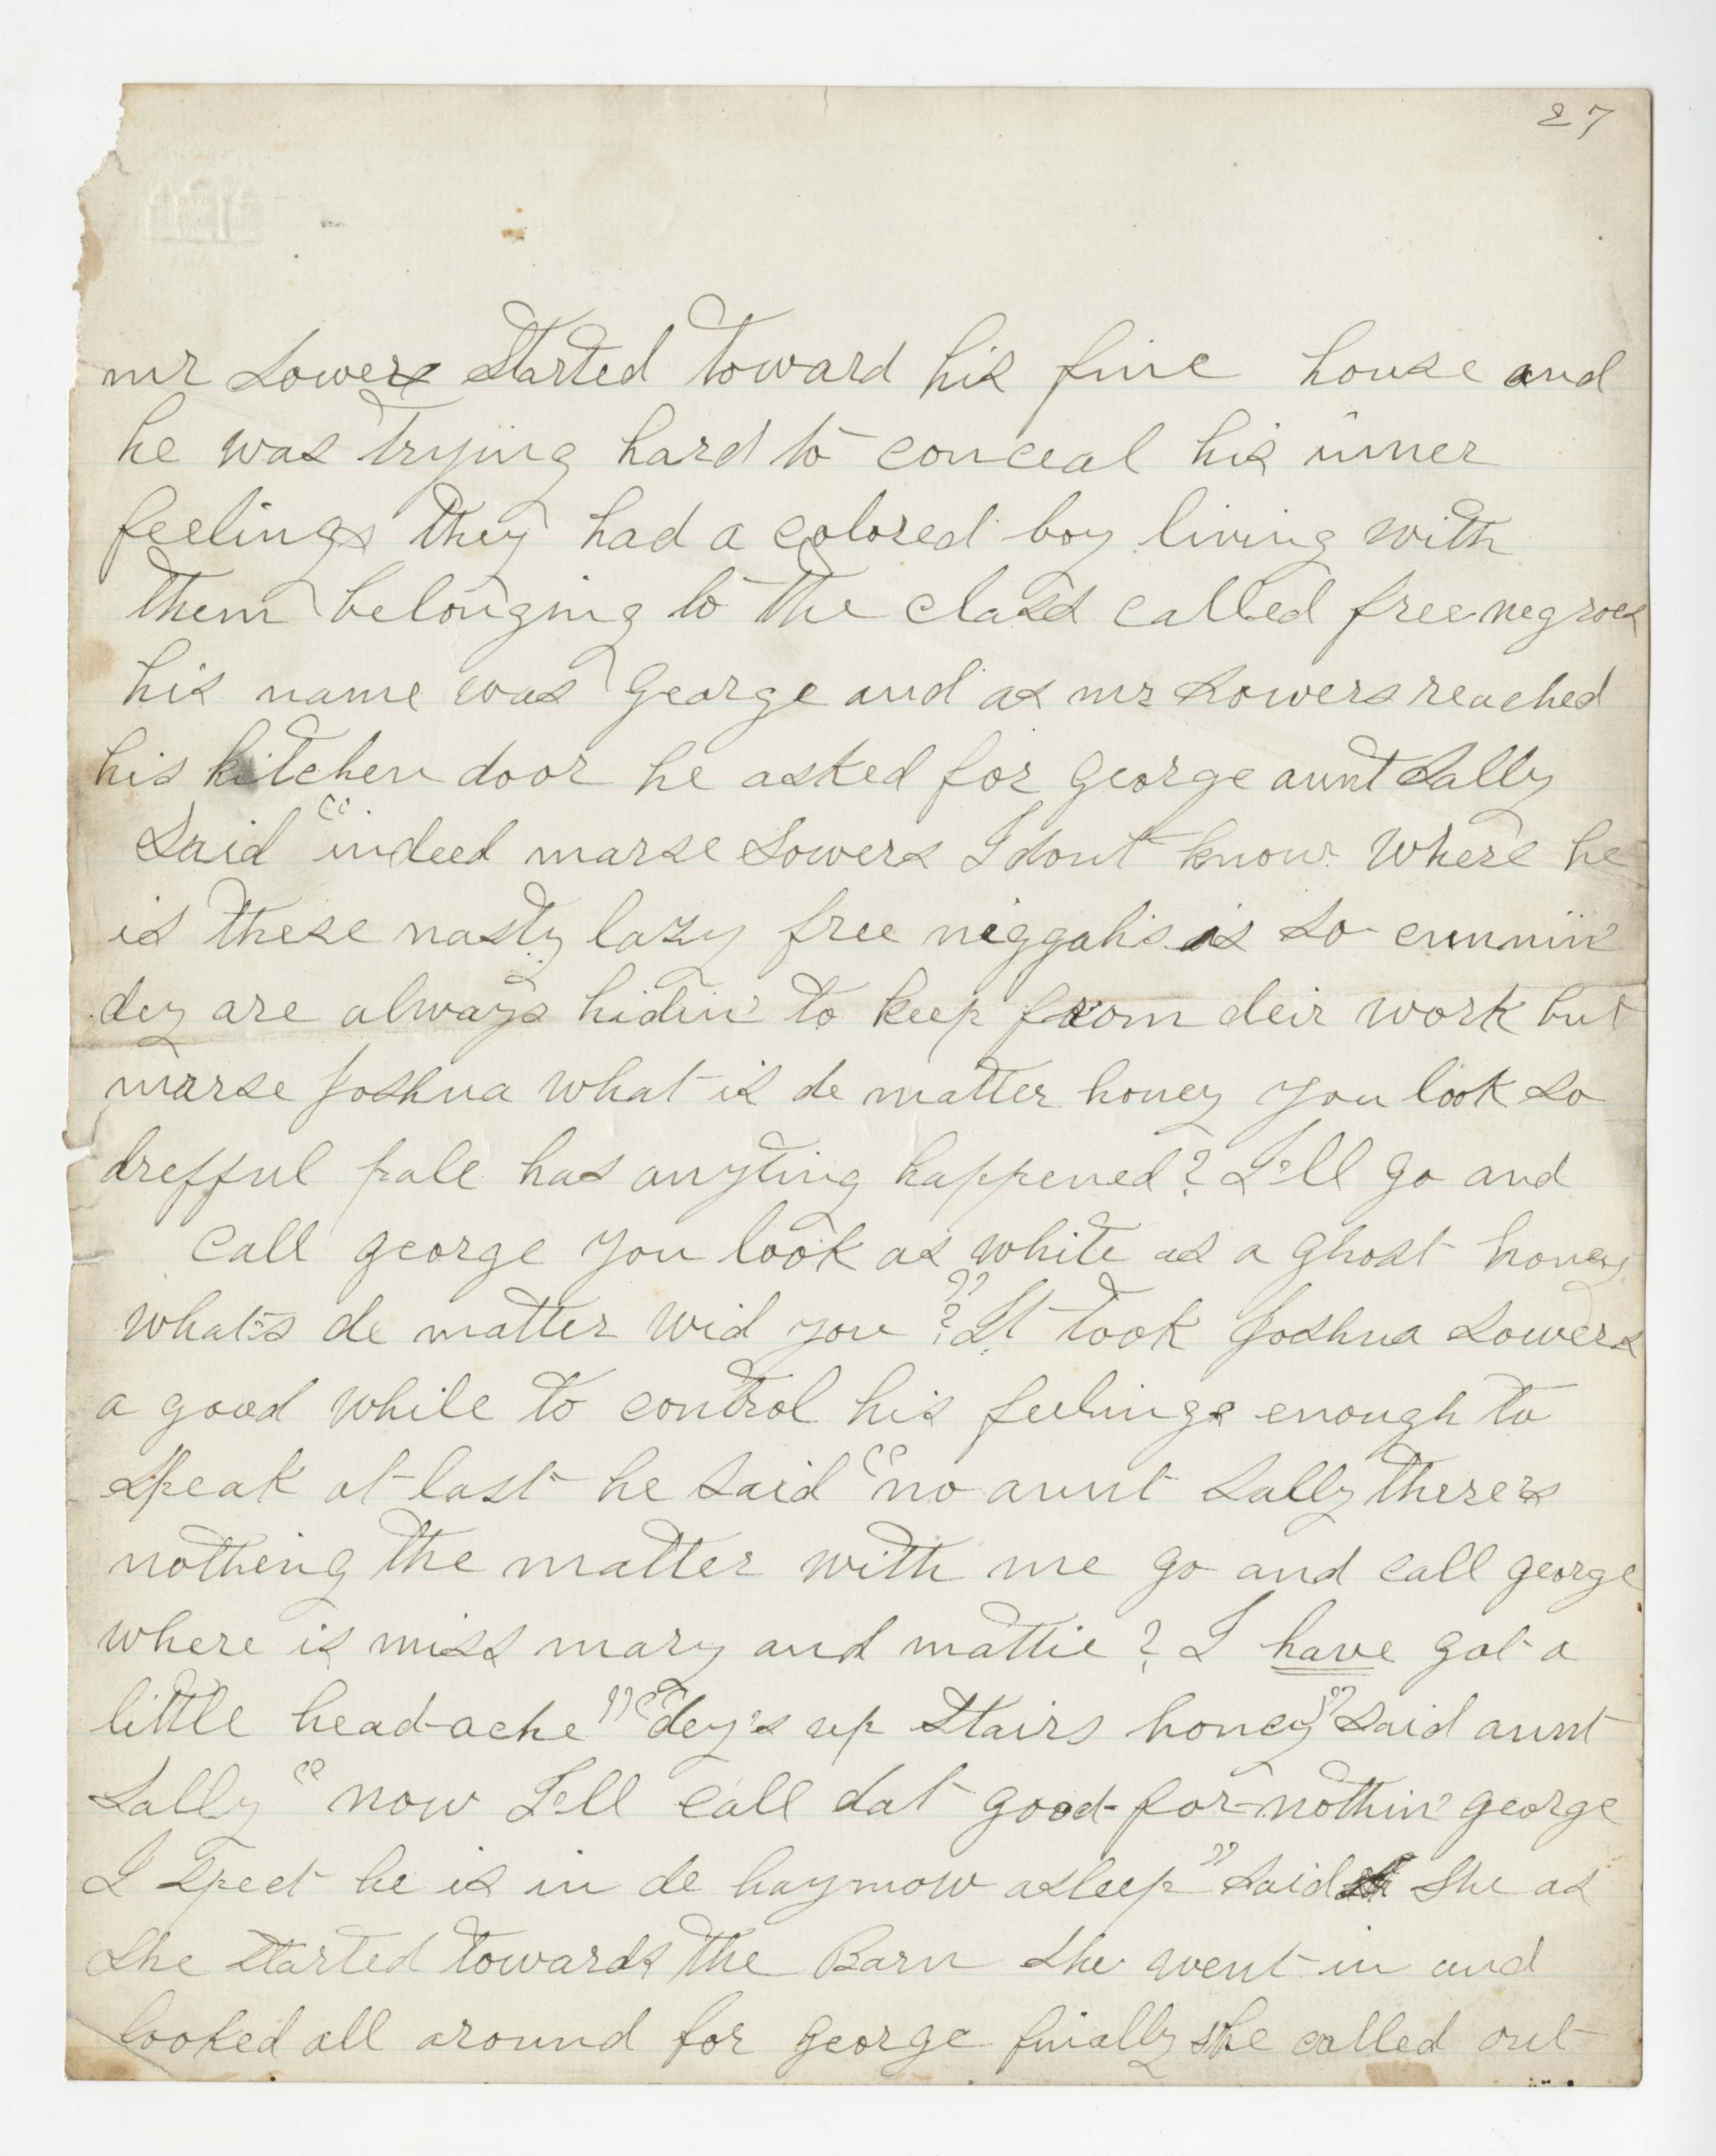 27
mr Sowers started toward his fine house and
he was trying hard to conceal his inner
feelings they had a colored boy living with
them belonging to the class called free negroes
his name was george and as mr Sowers reached
his kitchen door he asked for george aunt Sally
Said "indeed marse Sowers I dont know where he
is these nasty lazy free niggahs is so cunnin'
dey are always hidin' to keep from deir work but
marse Joshua what is de matter honey you look so
drefful pale has anyting happened? I'll go and
call george you look as white as a ghost honey
what's de matter wid you?" It took Joshua Sowers
a good while to control his feelings enough to
speak at last he said "no aunt Sally there's
nothing the matter with me go and call george
where is miss mary and mattie? I have got a
little head-ache" "dey's up stairs honey" said aunt
Sally "now I'll call dat good-for-nothin' george
I spect he is in de haymow asleep" said she as
she started towards the Barn she went in and
looked all around for george finally she called out